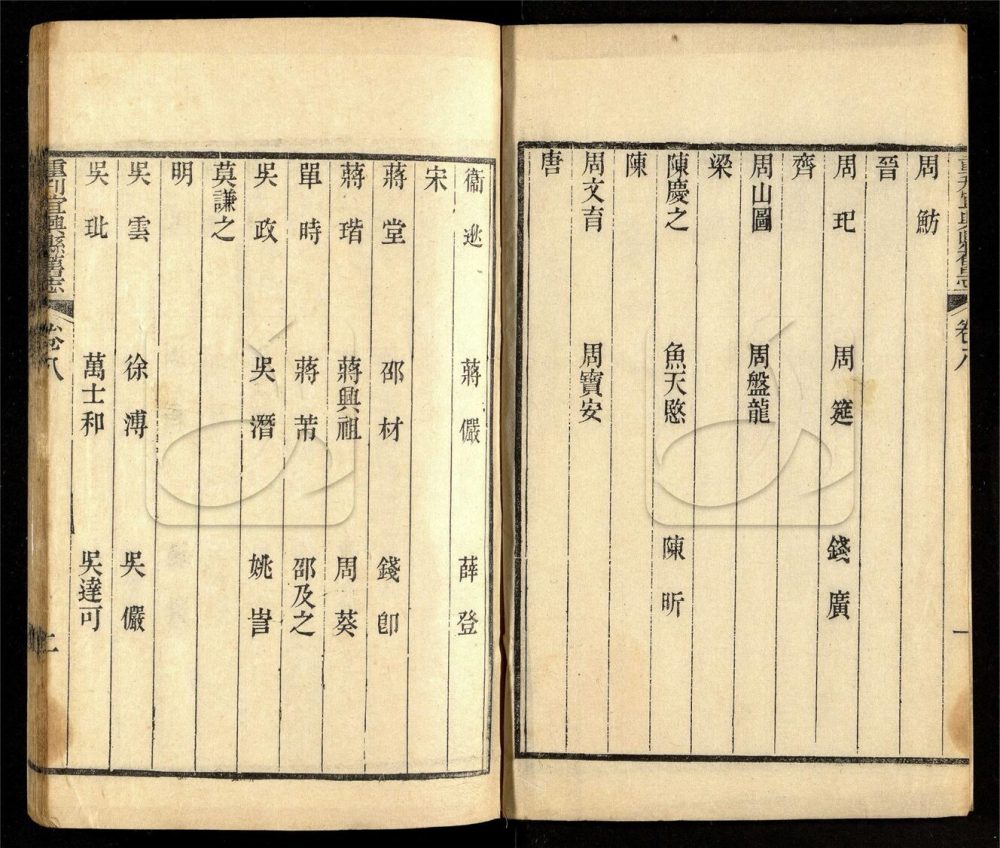 周魴
晉
周玘 周筵 錢廣
齊
周山圖 周盤龍
梁
陳慶之 魚天愍 陳昕
陳
周文育 周寶安
唐
衞逖 蔣儼 薛登
宋
蔣堂 邵材 錢卽
蔣瑎 蔣興祖 周葵
單時 蔣芾 邵及之
吳政 吳潛 姚訔
莫謙之
明
吳雲 徐溥 吳儼
吳玭 萬士和 吳達可
重刊宜興縣舊志 卷八